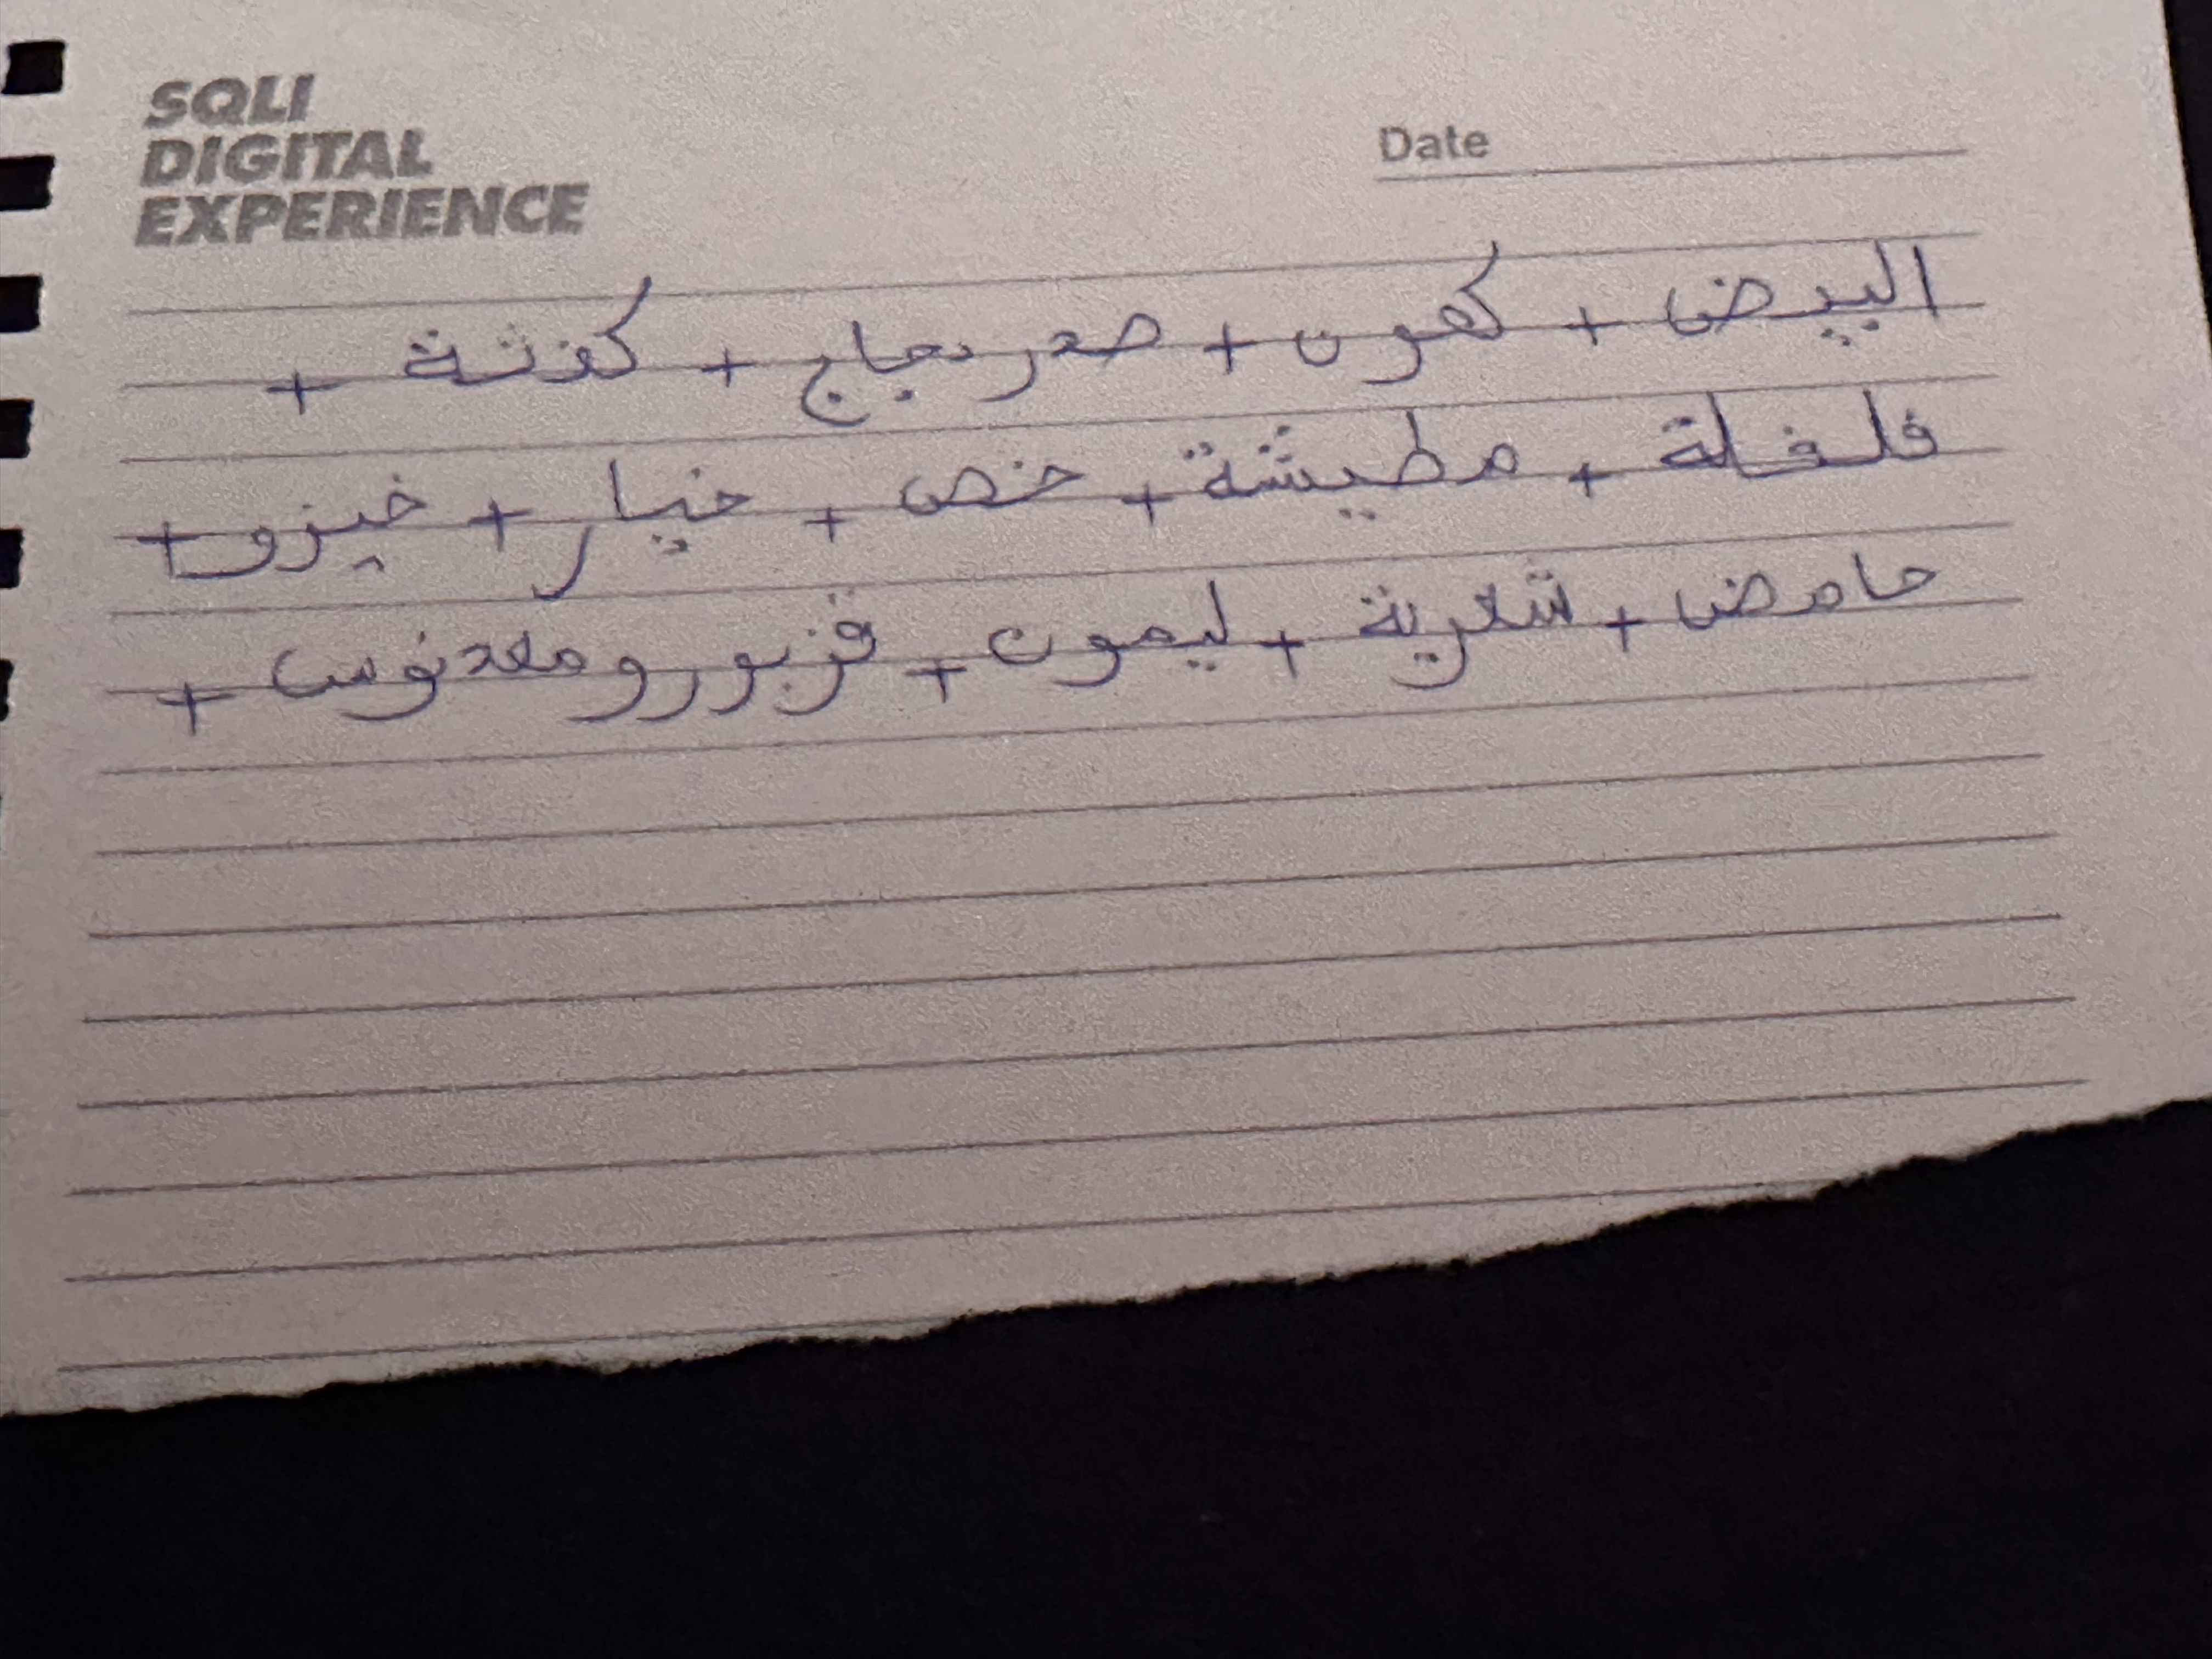 SQLI
DIGITAL
EXPERIENCE
Date
البيض + كمون + صدر دجاج + كفتة +
فلفلة + مطيشة + خص + خيار + خيزو +
حامض + شعرية + ليمون + قزبور ومعدنوس +